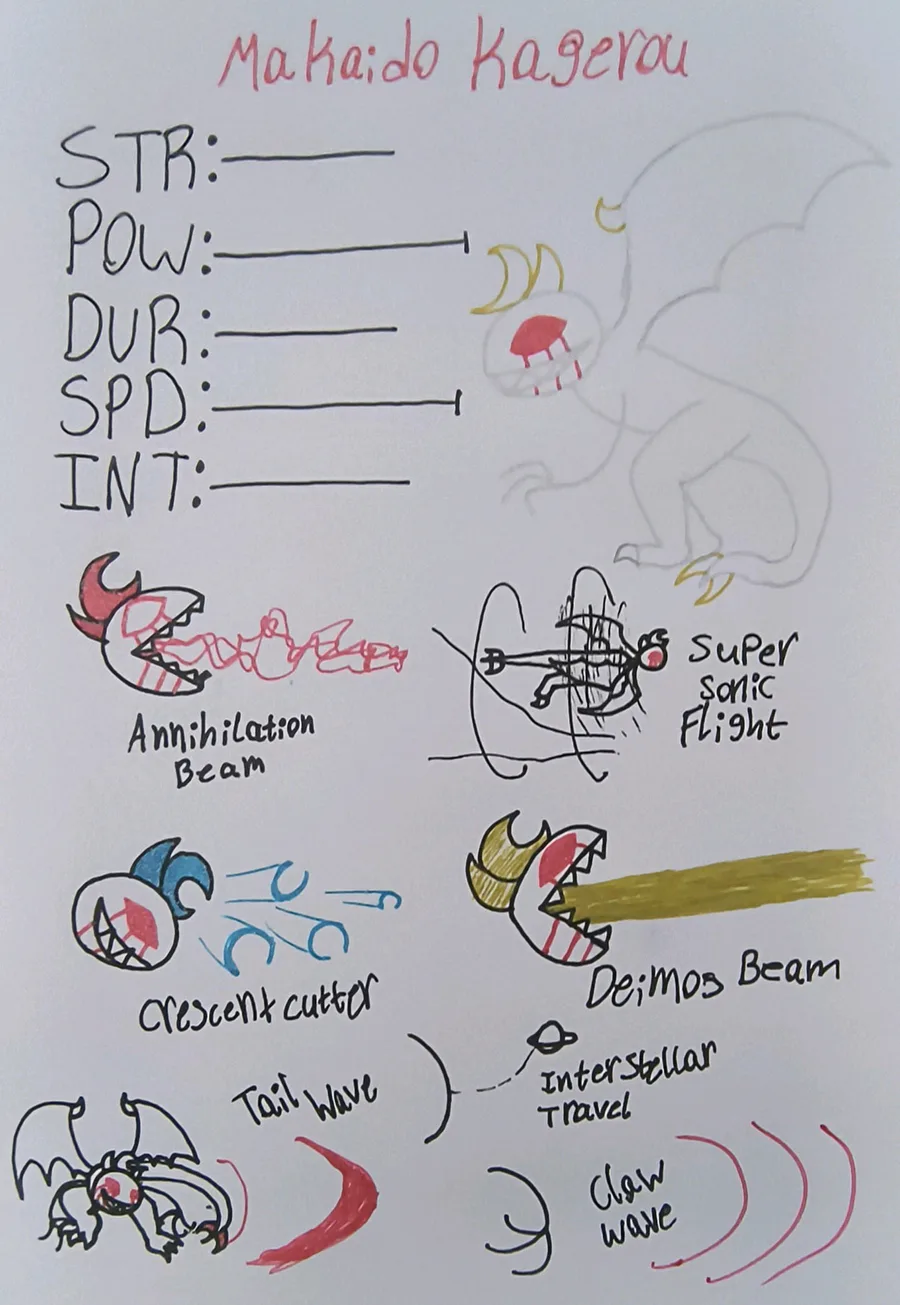 Makaido Kagerou
STR:
POW:
DUR:
SPD:
INT:
Annihilation
Beam
Super
Sonic
Flight
Crescent cutter
Deimos Beam
Tail Wave
Interstellar
Travel
Claw
wave